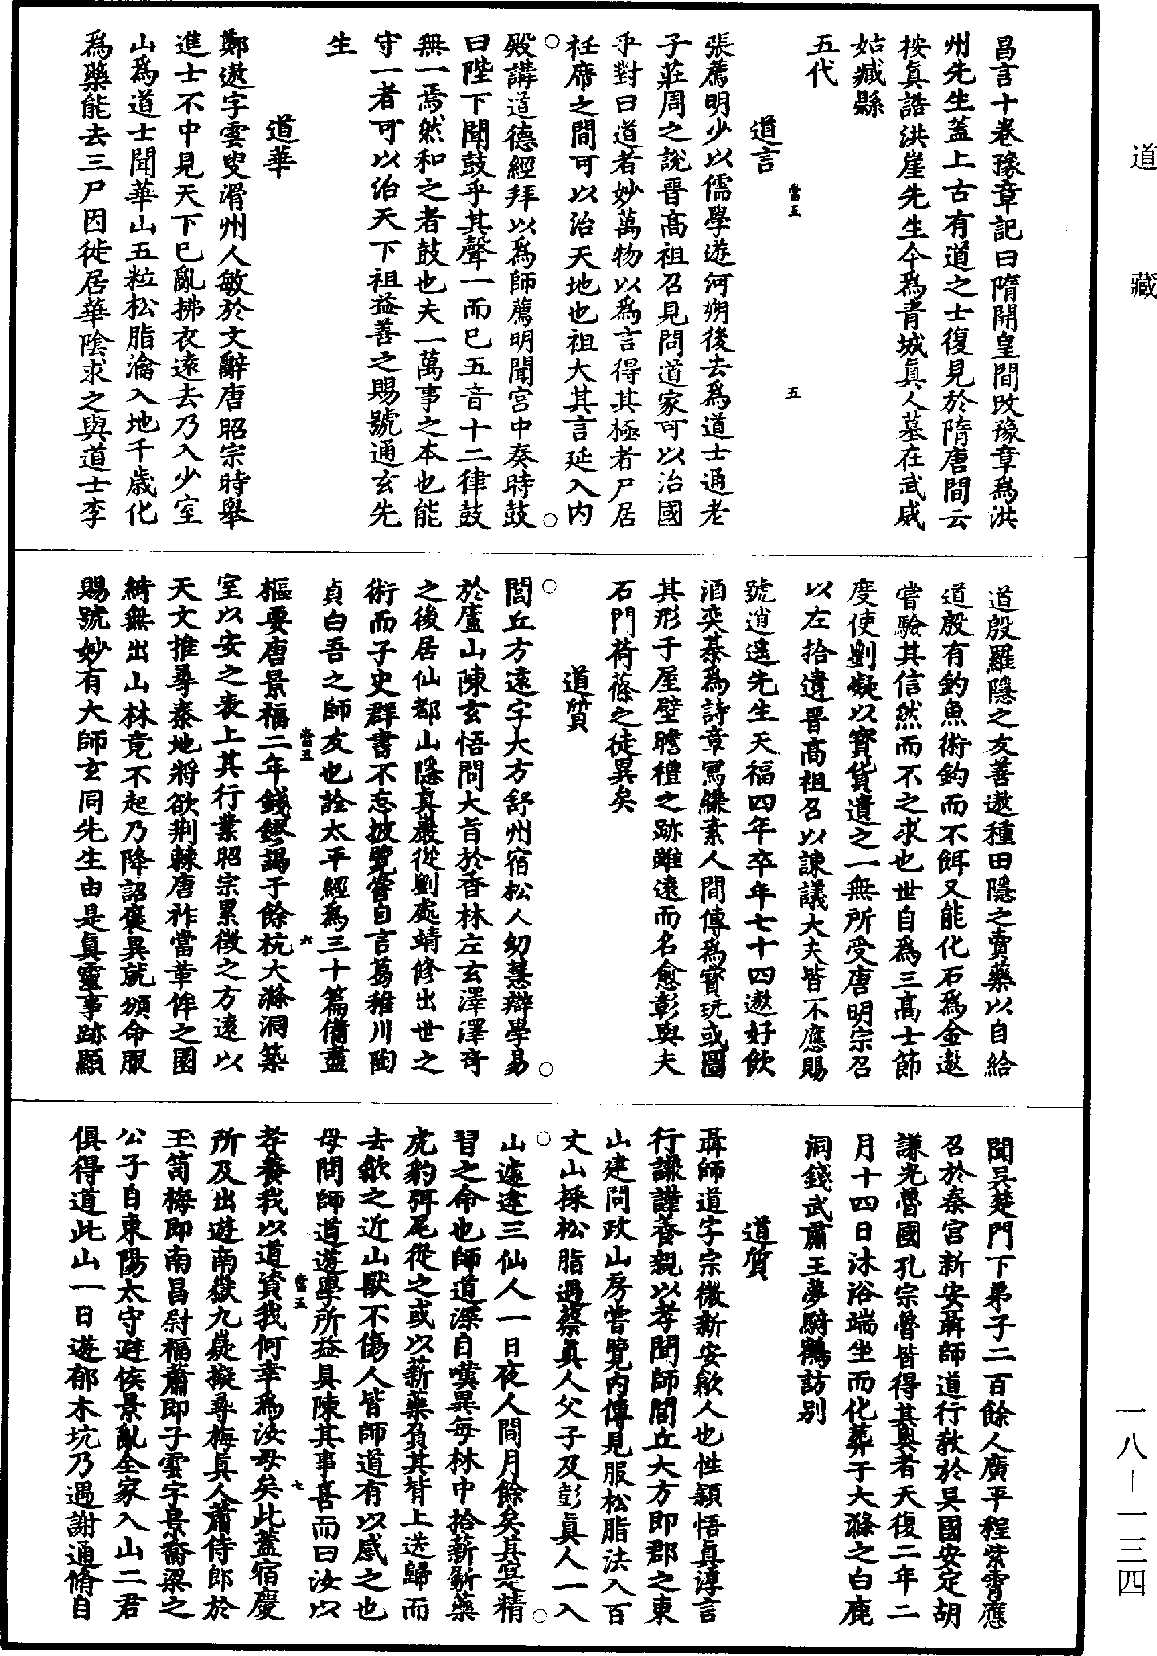 道藏
昌言十卷豫章記曰隋開皇間改豫章為洪
州先生蓋上古有道之士復見於隋唐間云
桉真誥洪崖先生今為青城真人墓在武威
姑臧縣
五代
道言
張薦明少以儒學遊河朔後去為道士通老
子莊周之說晉高祖召見問道家可以治國
乎對曰道者妙萬物以為言得其極者尸居
袵席之間可以治天地也祖大其言延入内
殿講道德經拜以為師薦明聞宮中奏時鼓
曰陛下聞鼓乎其聲一而已五音十二律鼓
無一焉然和之者鼓也夫一萬事之本也能
守一者可以治天下祖益善之賜號通玄先
生
道華
鄭遨字雲叟滑州人敏於文辭唐昭宗時舉
進士不中見天下已亂拂衣遠去乃入少室
山為道士聞華山五粒松脂淪入地千歲化
為藥能去三尸因徙居華陰求之與道士李
道殷羅隱之友善遨種田隱之賣藥以自給
道殷有釣魚術鈎而不餌又能化石為金遨
嘗驗其信然而不之求也世目為三高士節
度使劉凝以寶貨遺之一無所受唐明宗召
以左拾遺晉高祖召以諫議大夫皆不應賜
號逍遙先生天福四年卒年七十四遨好飲
酒奕棊為詩章寫縑素人間傳為寶玩或圖
其形于屋壁瞻禮之跡雖遠而名愈彰與夫
石門荷蓧之徒異矣
道質
閭丘方遠字大方舒州宿松人幼慧辯學易
於廬山陳玄悟問大旨於香林左玄澤澤奇
之後居仙都山隱真巖從劉處靖修出世之
術而子史群書不忘披覽嘗自言葛稚川陶
貞白吾之師友也詮太平經為三十篇備盡
樞要唐景福二年錢鏐謁于餘杭大滌洞築
室以安之表上其行業昭宗累徵之方遠以
天文推尋秦地將欲荆棘唐祚當革侔之園
綺無出山林竟不起乃降詔褒異就頒命服
賜號妙有大師玄同先生由是真靈事跡顯
聞吳楚門下弟子二百餘人廣平程紫霄應
召於秦宮新安聶師道行教於吳國安定胡
謙光魯國孔宗魯皆得其奧者天復二年二
月十四日沐浴端坐而化葬于大滌之白鹿
洞錢武肅王夢騎鶴訪别
道質
聶師道字宗微新安歙人也性穎悟真淳言
行謙謹養親以孝聞師閭丘大方即郡之東
山建問政山房嘗覽内傳見服松脂法入百
丈山採松脂遇蔡真人父子及彭真人一入
山遽逢三仙人一日夜人間月餘矣其寔精
習之命也師道深自嘆異每林中拾薪斸藥
虎豹弭尾從之或以薪藥負其背上送歸而
去歙之近山獸不傷人皆師道有以感之也
母問師道遊學所益具陳其事喜而曰汝以
孝養我以道資我何幸為汝母矣此蓋宿慶
所及出遊南嶽九疑擬尋梅真人蕭侍郎於
玉笥梅即南昌尉福蕭即子雲字景喬梁之
公子自東陽太守避侯景亂全家入山二君
俱得道此山一日遊郁木坑乃遇謝通脩自
當五
五
當五
六
當五
七
一八—一三四